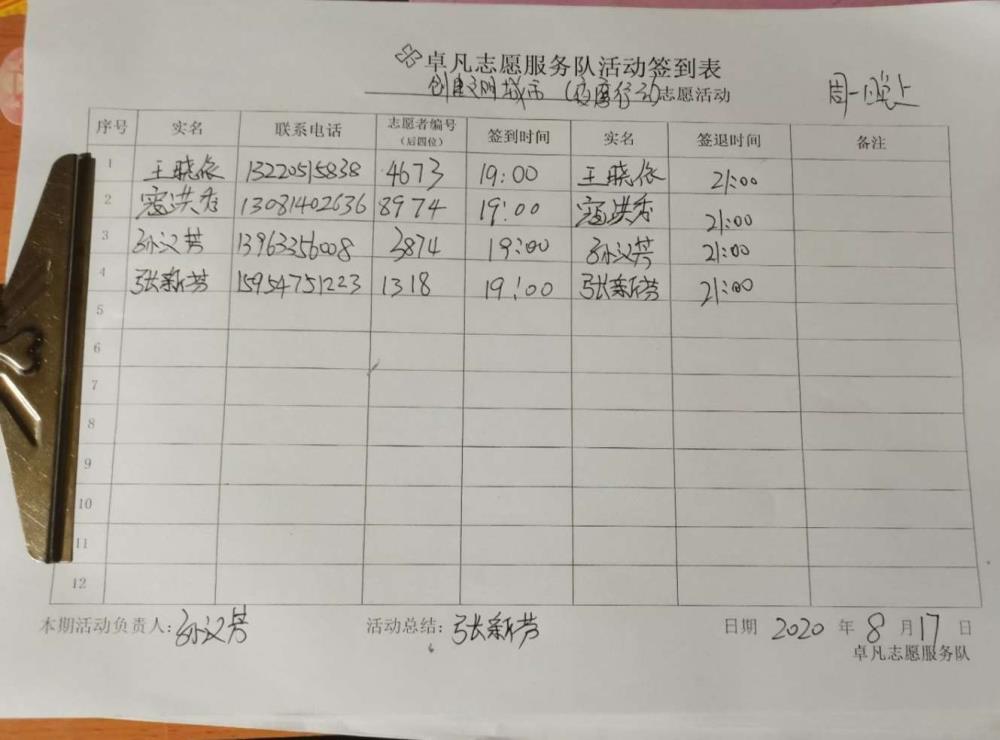 卓凡志愿服务队活动签到表
创建文明城市（夜魔行动）志愿活动
周一晚上
序号 实名 联系电话 志愿者编号（后四位） 签到时间 实名 签退时间 备注
1 王晓依 13220515838 4673 19:00 王晓依 21:00
2 寇洪秀 13081402636 8974 19:00 寇洪秀 21:00
3 孙汉芳 13963356008 3874 19:00 孙汉芳 21:00
4 张新芳 15954751223 1318 19:00 张新芳 21:00
5
6
7
8
9
10
11
12
本期活动负责人:孙汉芳 活动总结:张新芳 日期 2020 年 8 月 17 日
卓凡志愿服务队